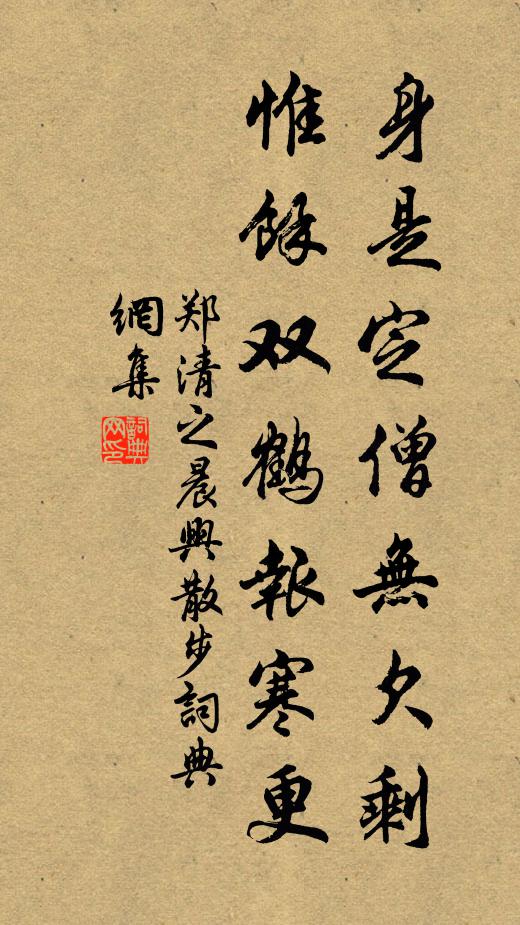 身是定僧無欠剩
惟餘双鶴報寒更
郑清之晨興散步詞典
網集
詞典
网印